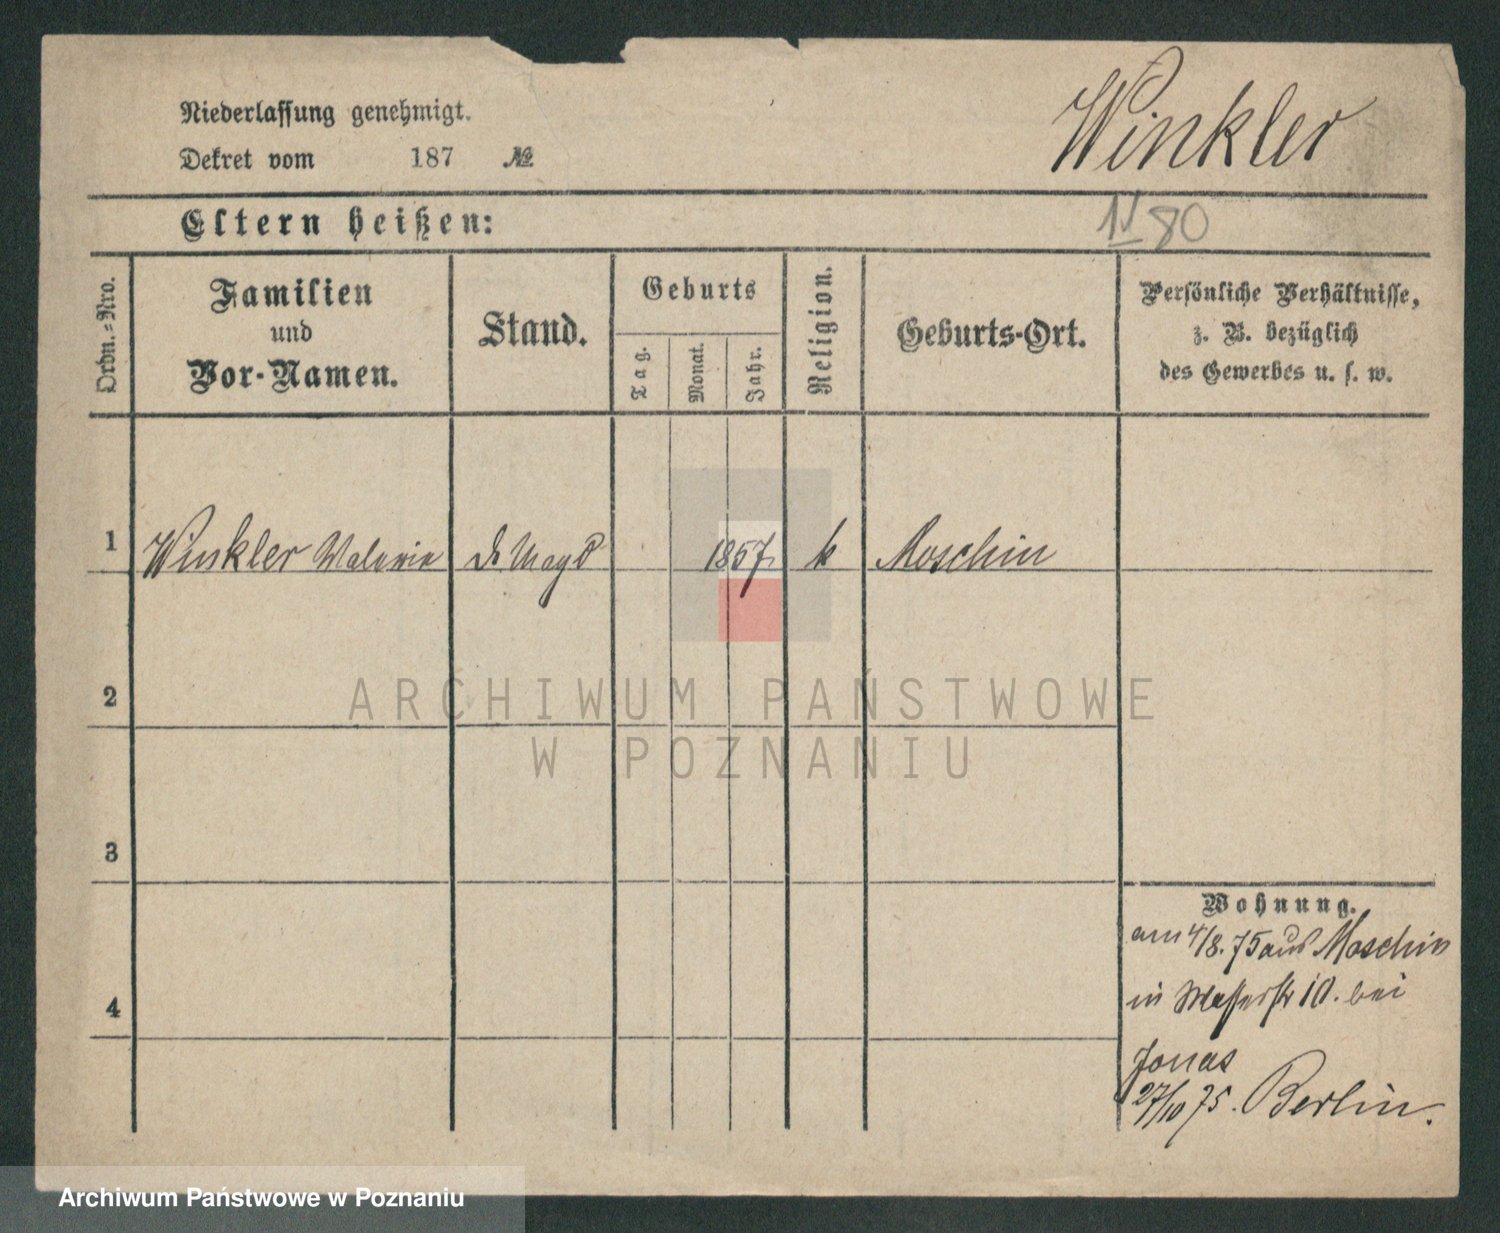 Niederlassung genehmigt.
Dekret vom 187 №
Winkler
Eltern heißen:
80
Ordn.-Nro.
Familien
und
Vor-Namen.
Stand.
Geburts
Tag.
Monat.
Jahr.
Religion.
Geburts-Ort.
Persönliche Verhältnisse,
z. B. bezüglich
des Gewerbes u. s. w.
1 Winkler Valeria Magd 1857 k Moschin
2
ARCHIWUM PAŃSTWOWE
W POZNANIU
3
4
Wohnung.
am 4/8.75 aus Moschin
in Wasserstr 10. bei
Jonas
27/10 75. Berlin.
Archiwum Państwowe w Poznaniu